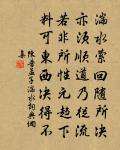 湍水縈回隨所決
亦須順道乃從流
若非所性元起下
料可東西決得不
陳普孟子湍水詞典網
集